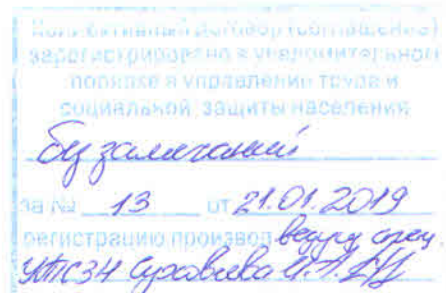 Коллективный договор (соглашение)
зарегистрировано в уведомительном
порядке в управлении труда и
социальной защиты населения
без замечаний
за № 13 от 21.01.2019
регистрацию произвел ведущ спец.
УТСЗН Суравцева